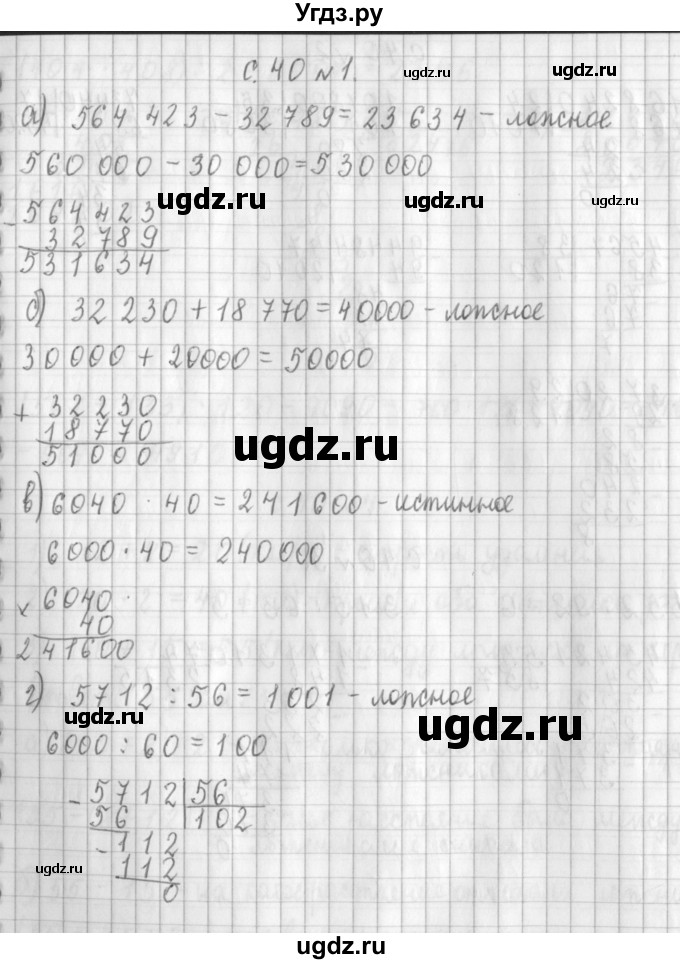 Угдз.ру
С. 40 №1.
ugdz.ru
а) 564 423 - 32 789 = 23 634 - ложное
560 000 - 30 000 = 530 000
ugdz.ru
ugdz.ru
ugdz.ru
- 564423
32789
531634
б) 32 230 + 18 770 = 40000 - ложное
30000 + 20000 = 50000
+ 32230
18770
51000
ugdz.ru
ugdz.ru
в) 6040 · 40 = 241600 - истинное
6000 · 40 = 240000
× 6040
40
241600
г) 5712 : 56 = 1001 - ложное
ugdz.ru
ugdz.ru
6000 : 60 = 100
- 5712 | 56
56 | 102
- 112
112
0
ugdz.ru
ugdz.ru
ugdz.ru